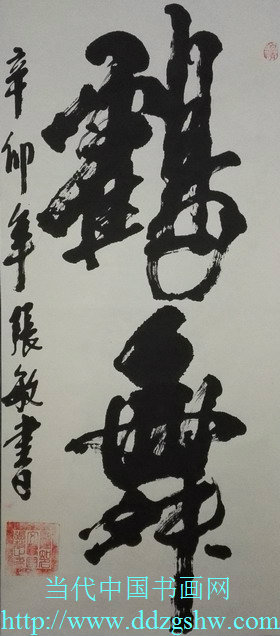 鶴舞
辛卯年張敏書
当代中国书画网
http://www.ddzgshw.com/